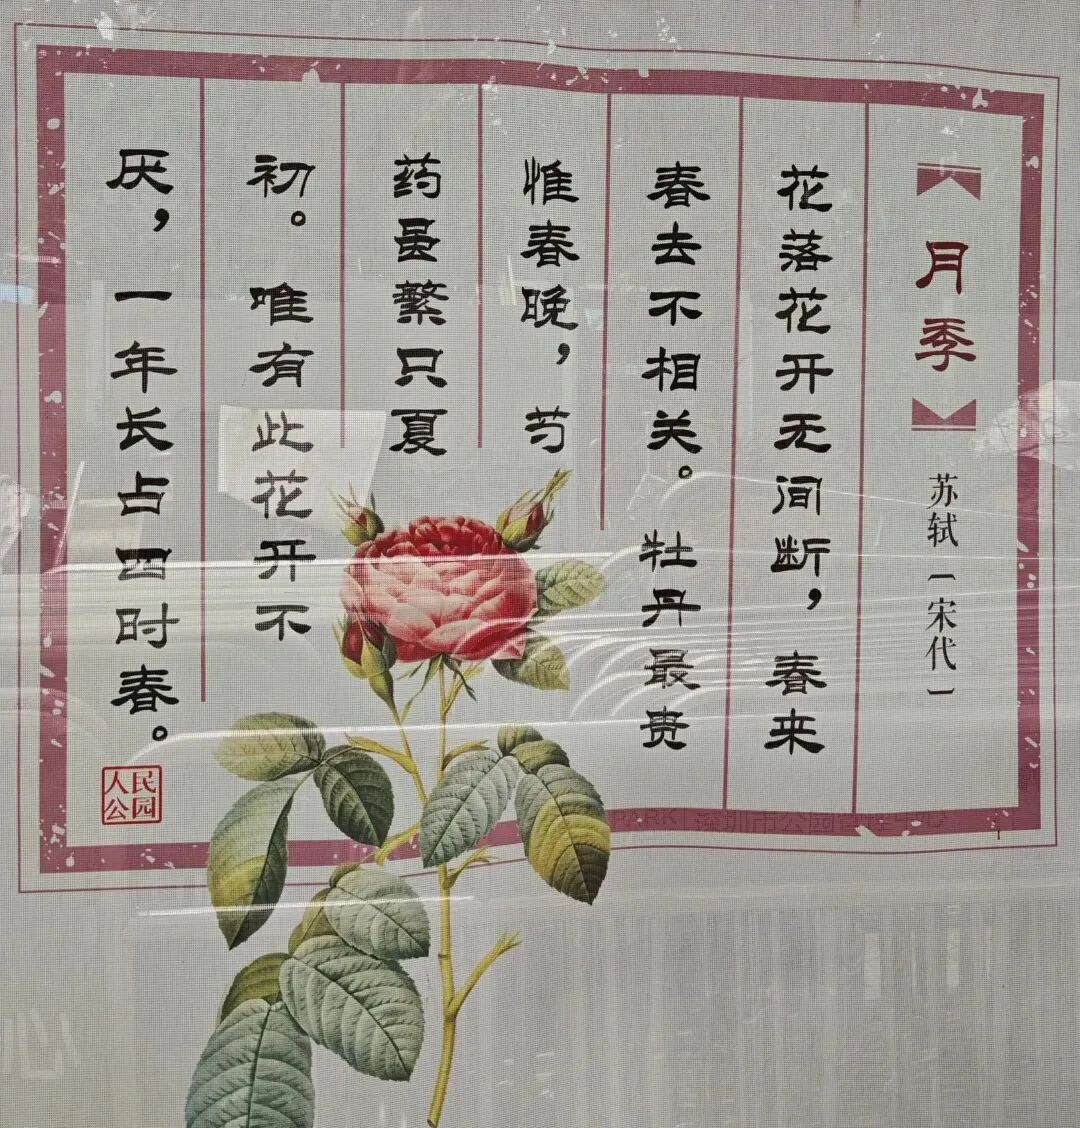 月季
苏轼〔宋代〕
花落花开无间断，春来
春去不相关。牡丹最贵
惟春晚，芍
药虽繁只夏
初。唯有此花开不
厌，一年长占四时春。
人民
公园
PARK 深圳市公园